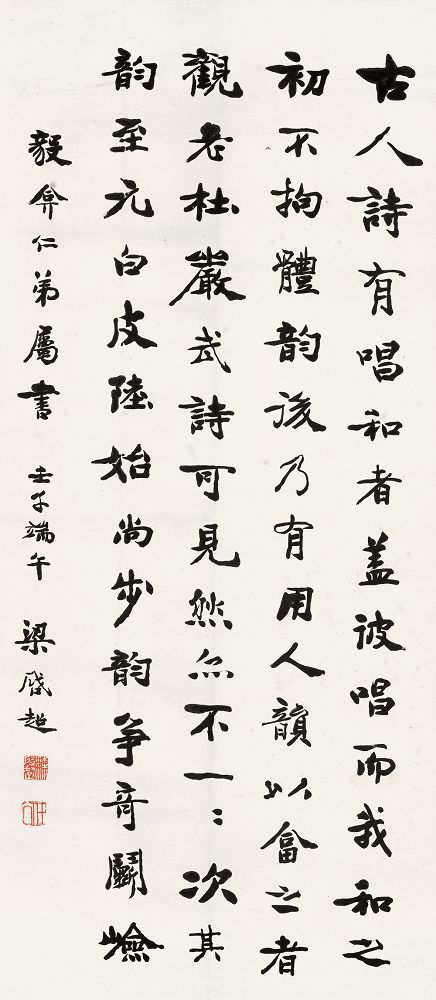 古人詩有唱和者蓋彼唱而我和之
初不拘體韵後乃有用人韻以畣之者
觀老杜嚴武詩可見然亦不一〻次其
韵至元白皮陸始尚步韵爭奇鬭嶮
毅弇仁弟屬書 壬子端午 梁啟超